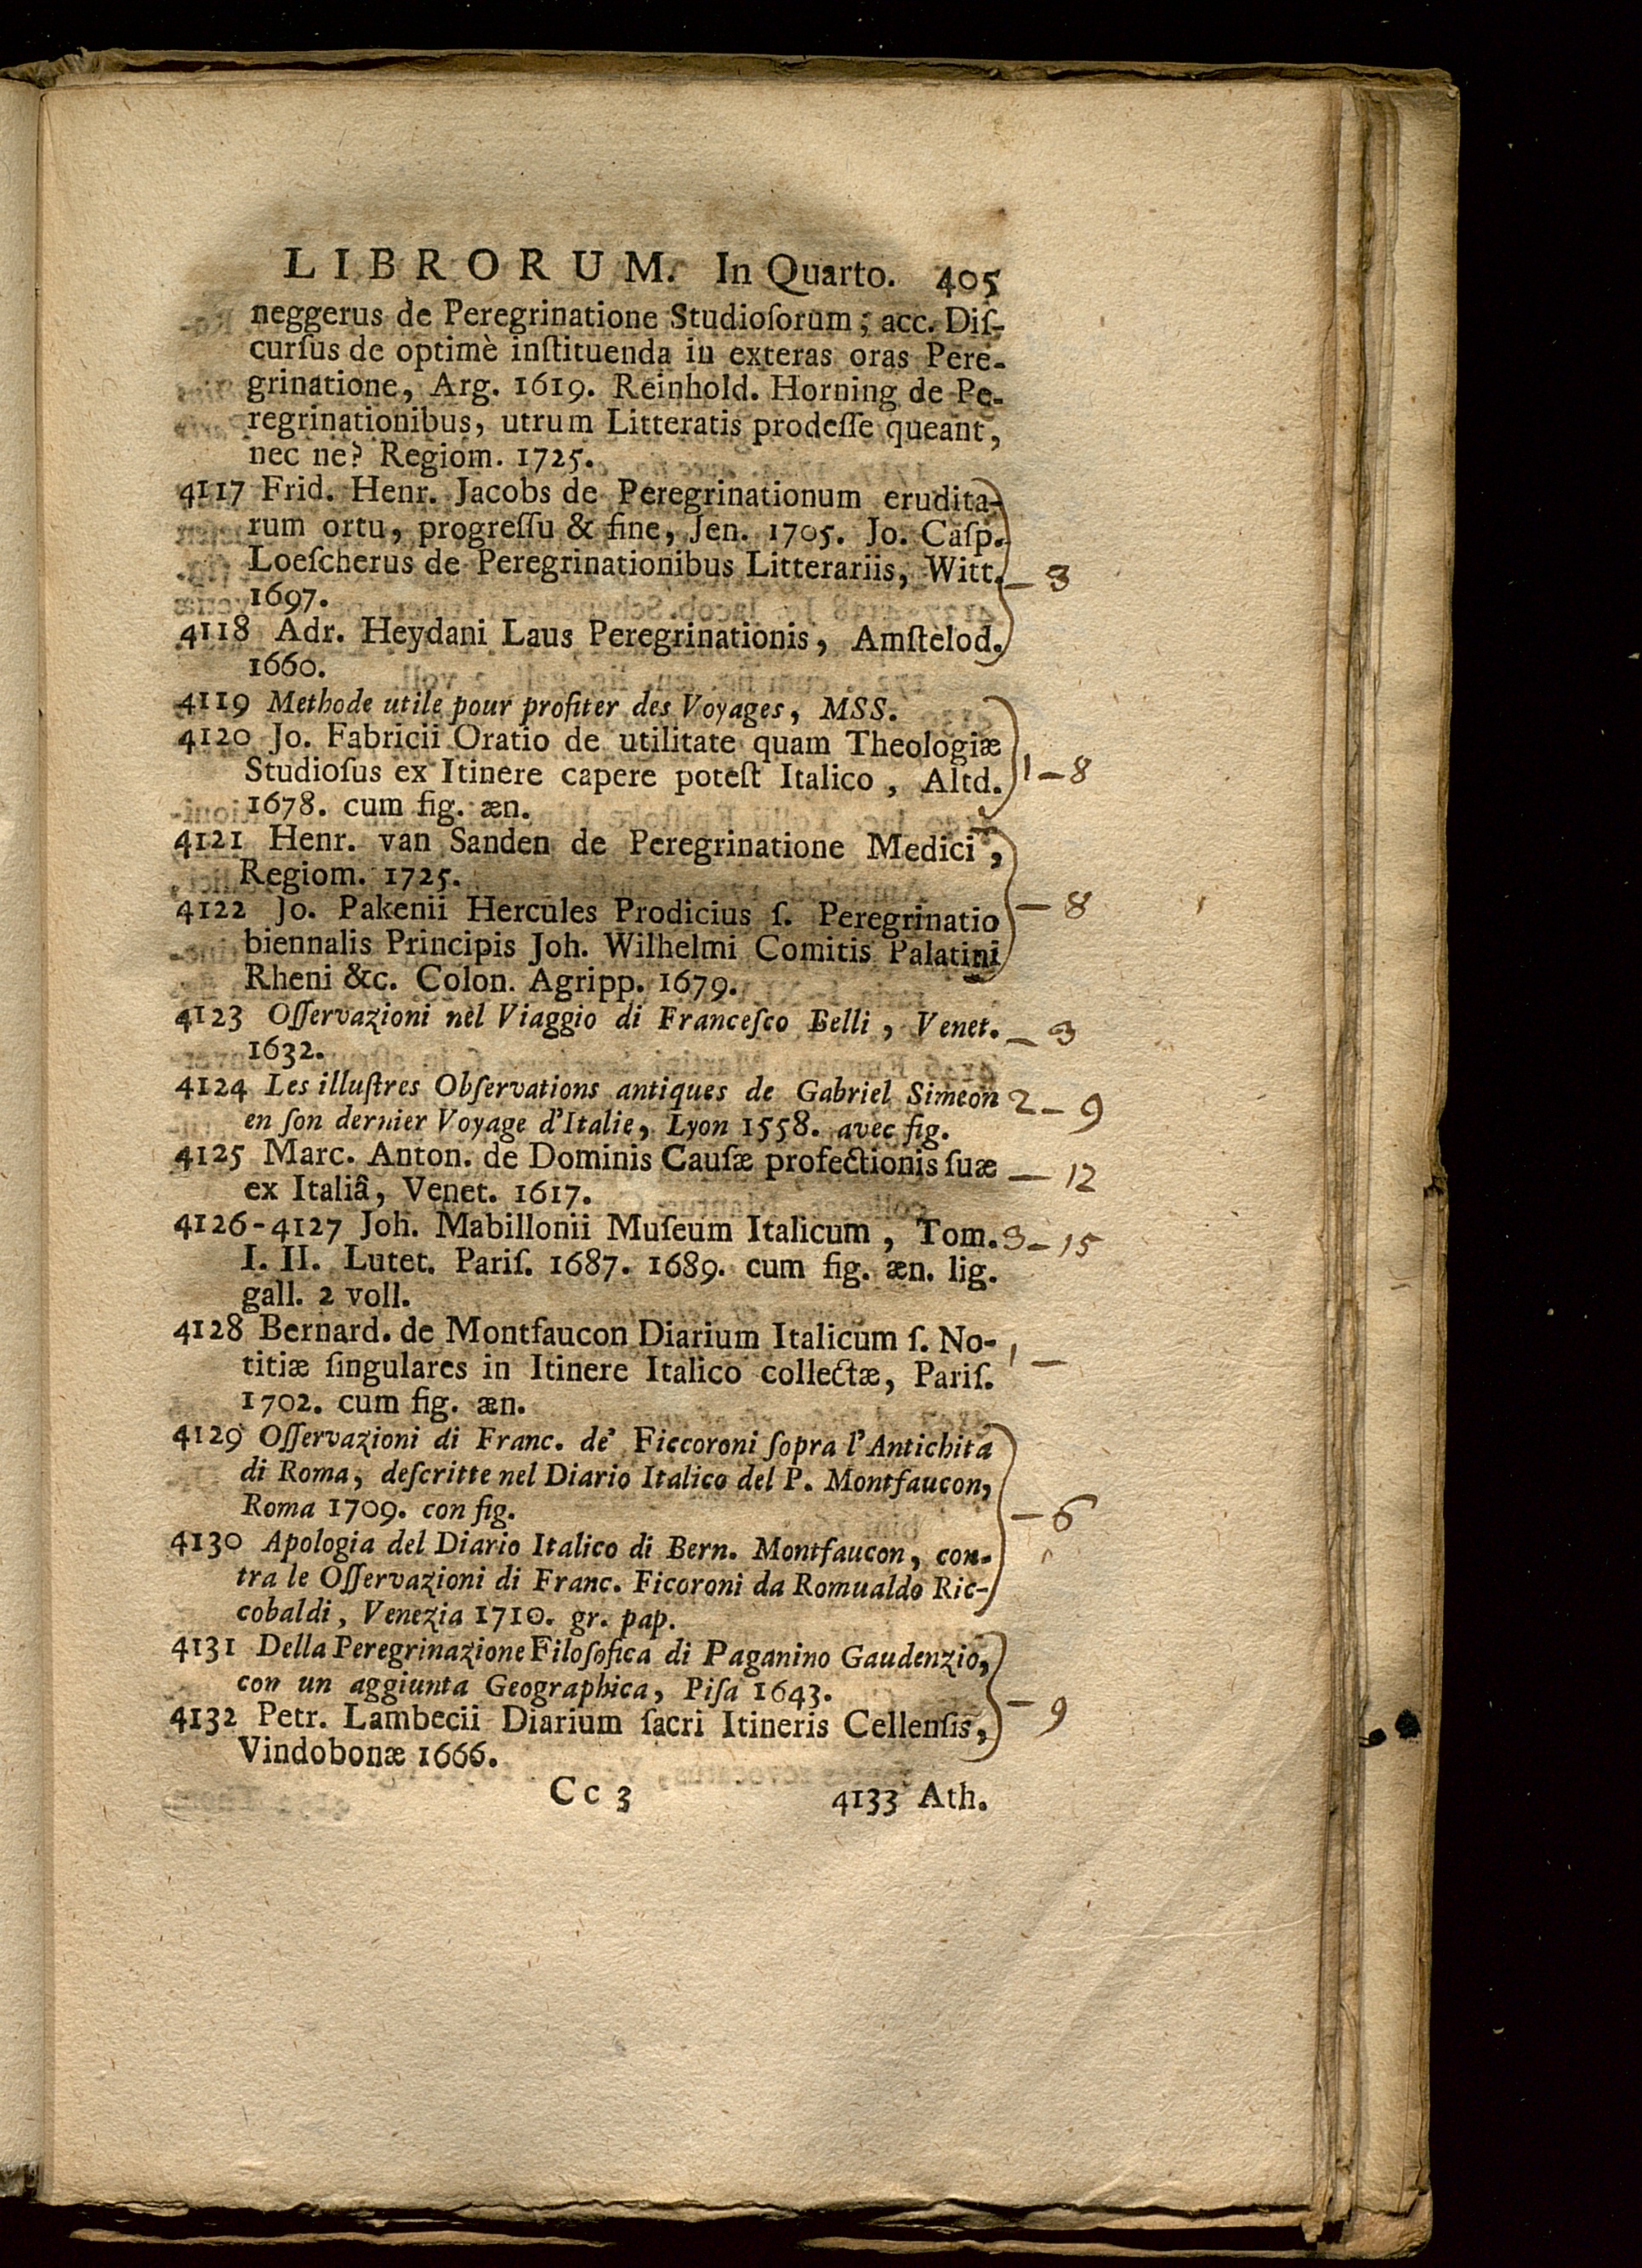 LIBRORUM. In Quarto. 405
neggerus de Peregrinatione Studioſorum; acc. Diſ-
curſus de optimè inſtituenda in exteras oras Pere-
grinatione, Arg. 1619. Reinhold. Horning de Pe-
regrinationibus, utrum Litteratis prodeſſe queant,
nec ne? Regiom. 1725.
4117 Frid. Henr. Jacobs de Peregrinationum erudita-
rum ortu, progreſſu & fine, Jen. 1705. Jo. Caſp.
Loeſcherus de Peregrinationibus Litterariis, Witt. – 3
1697.
4118 Adr. Heydani Laus Peregrinationis, Amſtelod.
1660.
4119 Methode utile pour profiter des Voyages, MSS.
4120 Jo. Fabricii Oratio de utilitate quam Theologiæ
Studioſus ex Itinere capere poteſt Italico, Altd. 1–8
1678. cum fig. æn.
4121 Henr. van Sanden de Peregrinatione Medici,
Regiom. 1725.
4122 Jo. Pakenii Hercules Prodicius ſ. Peregrinatio – 8
biennalis Principis Joh. Wilhelmi Comitis Palatini
Rheni &c. Colon. Agripp. 1679.
4123 Oſſervazioni nel Viaggio di Franceſco Belli, Venet. – 3
1632.
4124 Les illuſtres Obſervations antiques de Gabriel Simeon 2–9
en ſon dernier Voyage d'Italie, Lyon 1558. avec fig.
4125 Marc. Anton. de Dominis Cauſæ profectionis ſuæ – 12
ex Italiâ, Venet. 1617.
4126-4127 Joh. Mabillonii Muſeum Italicum, Tom. 3–15
I. II. Lutet. Pariſ. 1687. 1689. cum fig. æn. lig.
gall. 2 voll.
4128 Bernard. de Montfaucon Diarium Italicum ſ. No- 1 –
titiæ ſingulares in Itinere Italico collectæ, Pariſ.
1702. cum fig. æn.
4129 Oſſervazioni di Franc. de' Ficcoroni ſopra l'Antichita
di Roma, deſcritte nel Diario Italico del P. Montfaucon,
Roma 1709. con fig. – 6
4130 Apologia del Diario Italico di Bern. Montfaucon, con-
tra le Oſſervazioni di Franc. Ficoroni da Romualdo Ric-
cobaldi, Venezia 1710. gr. pap.
4131 Della Peregrinazione Filoſofica di Paganino Gaudenzio,
con un aggiunta Geographica, Piſa 1643. – 9
4132 Petr. Lambecii Diarium ſacri Itineris Cellenſis,
Vindobonæ 1666.
Cc 3 4133 Ath.